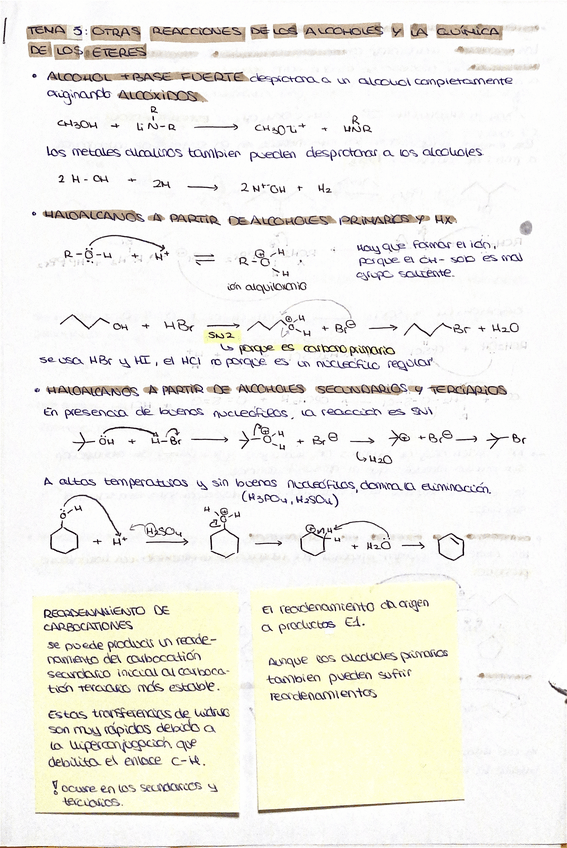 TEMA 5: OTRAS REACCIONES DE LOS ALCOHOLES Y LA QUÍMICA
DE LOS ETERES
• ALCOHOL + BASE FUERTE desprotona a un alcohol completamente
originando ALCÓXIDOS
R
CH3OH + LiN-R → CH3OLi+ + HNR
R
los metales alcalinos tambien pueden desprotonar a los alcoholes
2 H-OH + 2M → 2 M+-OH + H2
• HALOALCANOS A PARTIR DE ALCOHOLES PRIMARIOS Y HX.
R-O-H + H+ ⇌ R-O⊕ H H
ion alquiloxonio
Hay que formar el ión,
porque el OH- solo es mal
grupo saliente.
OH + HBr → O⊕ H H + Br⊖ → Br + H2O
SN2
↳ porque es carbono primario
se usa HBr y HI, el HCl no porque es un nucleófilo regular
• HALOALCANOS A PARTIR DE ALCOHOLES SECUNDARIOS Y TERCIARIOS
En presencia de buenos nucleófilos, la reacción es SN1
OH + H-Br → O⊕ H H + Br⊖ → ⊕ + Br⊖ → Br
↳ H2O
A altas temperaturas y sin buenos nucleófilos, domina la eliminación.
(H3PO4, H2SO4)
O-H + H+ H2SO4 → H O⊕ H → ⊕ H H + H2O →
REORDENAMIENTO DE
CARBOCATIONES
se puede producir un reorde-
namiento del carbocatión
secundario inicial al carboca-
tión terciario más estable.
Estas transferencias de hidruro
son muy rápidas debido a
la hiperconjugación que
debilita el enlace C-H.
! ocurre en los secundarios y
terciarios.
El reordenamiento da origen
a productos E1.
Aunque los alcoholes primarios
tambien pueden sufrir
reordenamientos